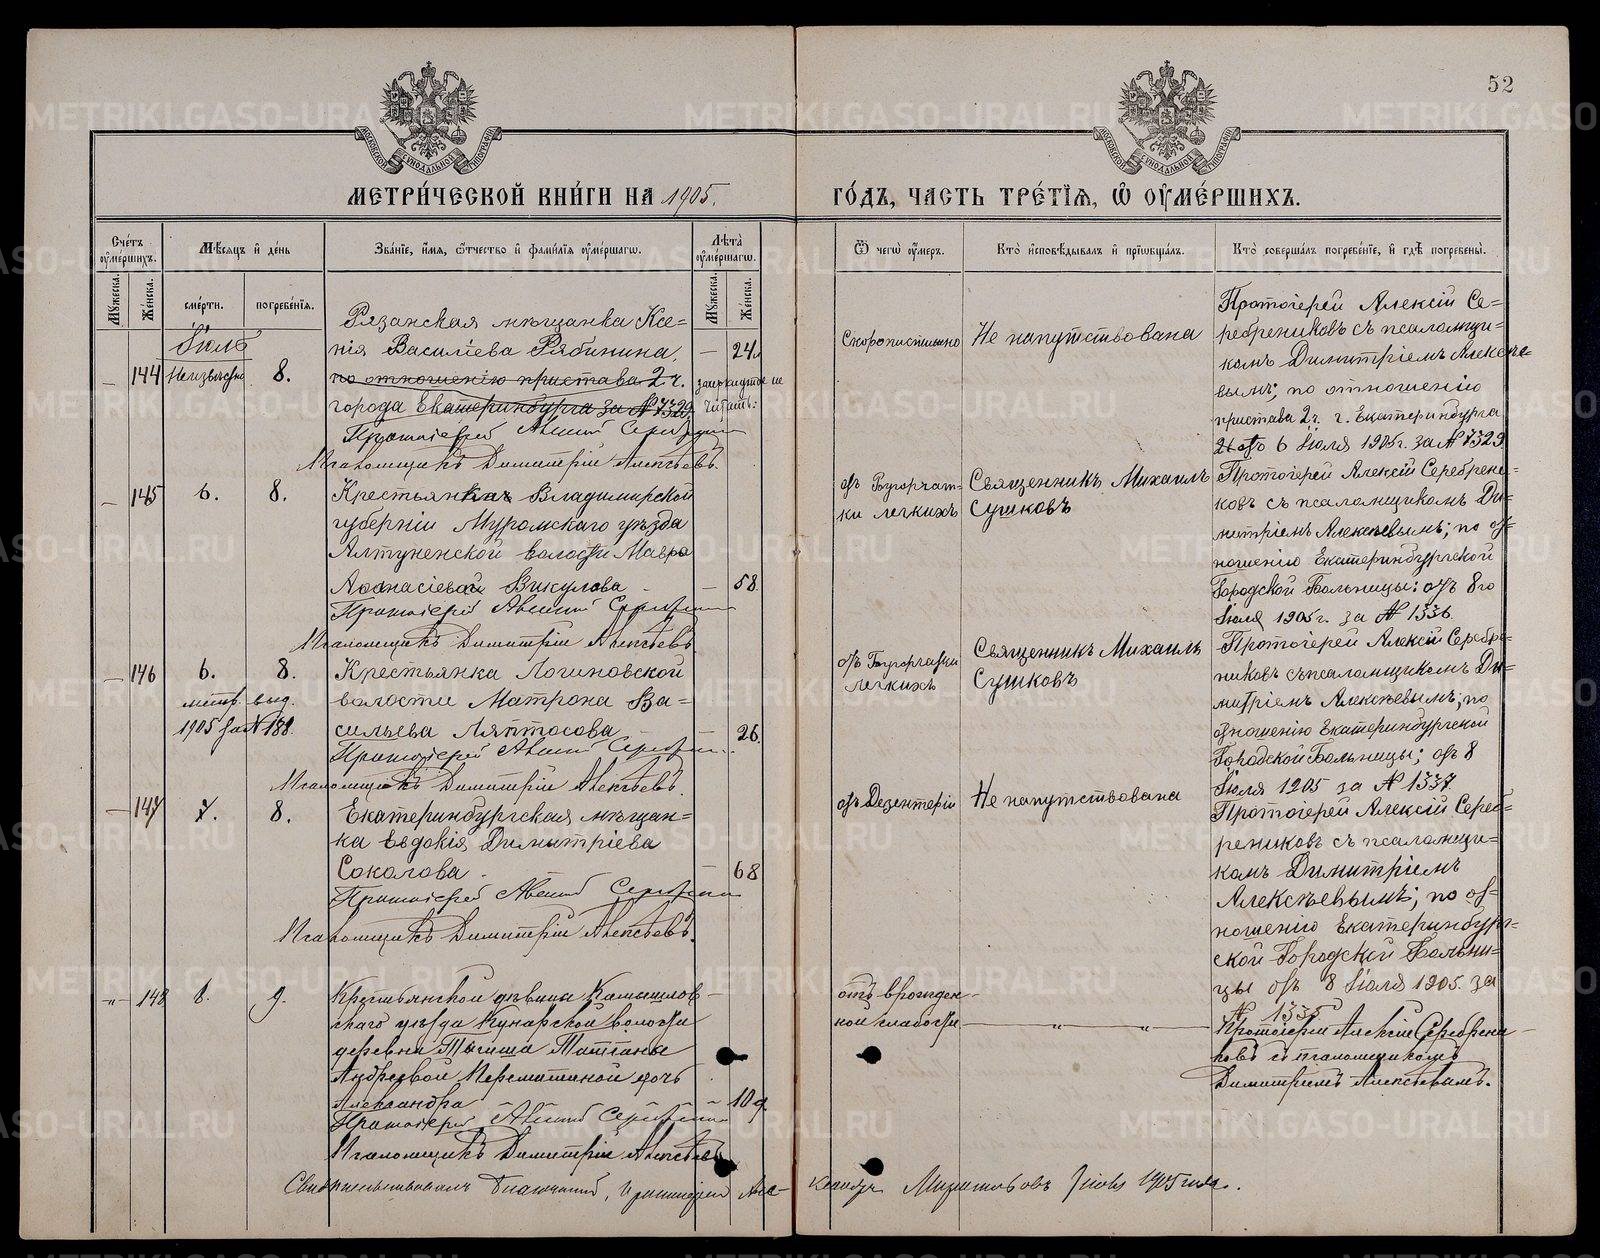 52
МОСКОВСКОЙ СУНОДАЛЬНОЙ ТИПОГРАФІИ
МОСКОВСКОЙ СУНОДАЛЬНОЙ ТИПОГРАФІИ
МЕТРИ́ЧЕСКОЙ КНИ́ГИ НА 1905. ГО́ДЪ, ЧАСТЬ ТРЕ́ТІѦ, Ѽ ОУМЕ́РШИХЪ.
Сче́тъ оумершихъ.
Мѣсѧцъ и де́нь
Зва́нїе, и́мѧ, ѻ́тчество и фами́лїѧ оуме́ршагѡ.
Лѣта̀ оуме́ршагѡ.
Ѿ чегѡ̀ оу́меръ.
Кто̀ исповѣ́дывалъ и прїѡбща́лъ.
Кто̀ соверша́лъ погребе́нїе, и гдѣ̀ погребены̀.
Мужеска.
Же́нска.
сме́рти.
погребе́нїѧ.
Мужеска.
Же́нска.
Іюль
— 144
Неизвѣстно
8.
Рязанская мѣщанка Ксе-
нія Василіева Рябинина.
по отношенію пристава 2 ч.
города Екатеринбурга за № 7329.
Протоіерей Алексій
Псаломщикъ Димитрій Алексѣевъ.
— 24
зачеркнутое не
читать:
Скоропостижно
Не напутствована
Протоіерей Алексій Се-
ребрениковъ съ псаломщи-
комъ Димитріемъ Алексѣе-
вымъ; по отношенію
пристава 2 ч. г. Екатеринбурга
6 Іюля 1905 г. за № 7329
— 145
6.
8.
Владимирской
губерніи Муромскаго уѣзда
волости Мавра
Аѳанасіева Викулова
Протоіерей Алексій
Псаломщикъ Димитрій Алексѣевъ
— 58.
отъ Бугорчат-
ки легкихъ
Священникъ Михаилъ
Сушковъ
Протоіерей Алексій Серебрени-
ковъ съ псаломщикомъ Ди-
митріемъ Алексѣевымъ; по от-
ношенію Екатеринбургской
Городской Больницы: отъ 8го
Іюля 1905 г. за № 1336
— 146
6.
8.
метр. выд.
1905 за № 188.
Крестьянка Логиновской
волости Матрона Ва-
сильева
Протоіерей Алексій
Псаломщикъ Димитрій Алексѣевъ.
— 26.
отъ Бугорчатки
легкихъ
Священникъ Михаилъ
Сушковъ
Протоіерей Алексій Серебре-
никовъ съ псаломщикомъ Ди-
митріемъ Алексѣевымъ; по
отношенію Екатеринбургской
Городской Больницы; отъ 8
Іюля 1905 за № 1337.
— 147
7.
8.
Екатеринбургская мѣщан-
ка Евдокія Димитріева
Соколова.
Протоіерей Алексій
Псаломщикъ Димитрій Алексѣевъ.
— 68
отъ Дезентеріи
Не напутствована
Протоіерей Алексій Сереб-
рениковъ съ псаломщи-
комъ Димитріемъ
Алексѣевымъ; по от-
ношенію Екатеринбург-
ской Городской Больни-
цы отъ 8 Іюля 1905. за
№ 1335
— 148
8.
9.
Крестьянской дѣвицы Камышлов-
скаго уѣзда Кунарской волости
деревни Татіаны
Андреевой дочь
Александра
Протоіерей Алексій
Псаломщикъ Димитрій Алексѣевъ
10 д.
отъ врожден-
ной слабости — „ — „ —
Протоіерей Алексій Серебрени-
ковъ съ псаломщикомъ
Димитріемъ Алексѣевымъ.
Свидѣтельствовалъ Благочинный, Протоіерей Але- ксандръ 1905 года.
METRIKI.GASO-URAL.RU